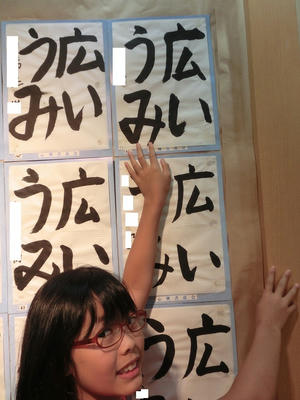 広い
うみ
広い
うみ
広い
うみ
広い
う